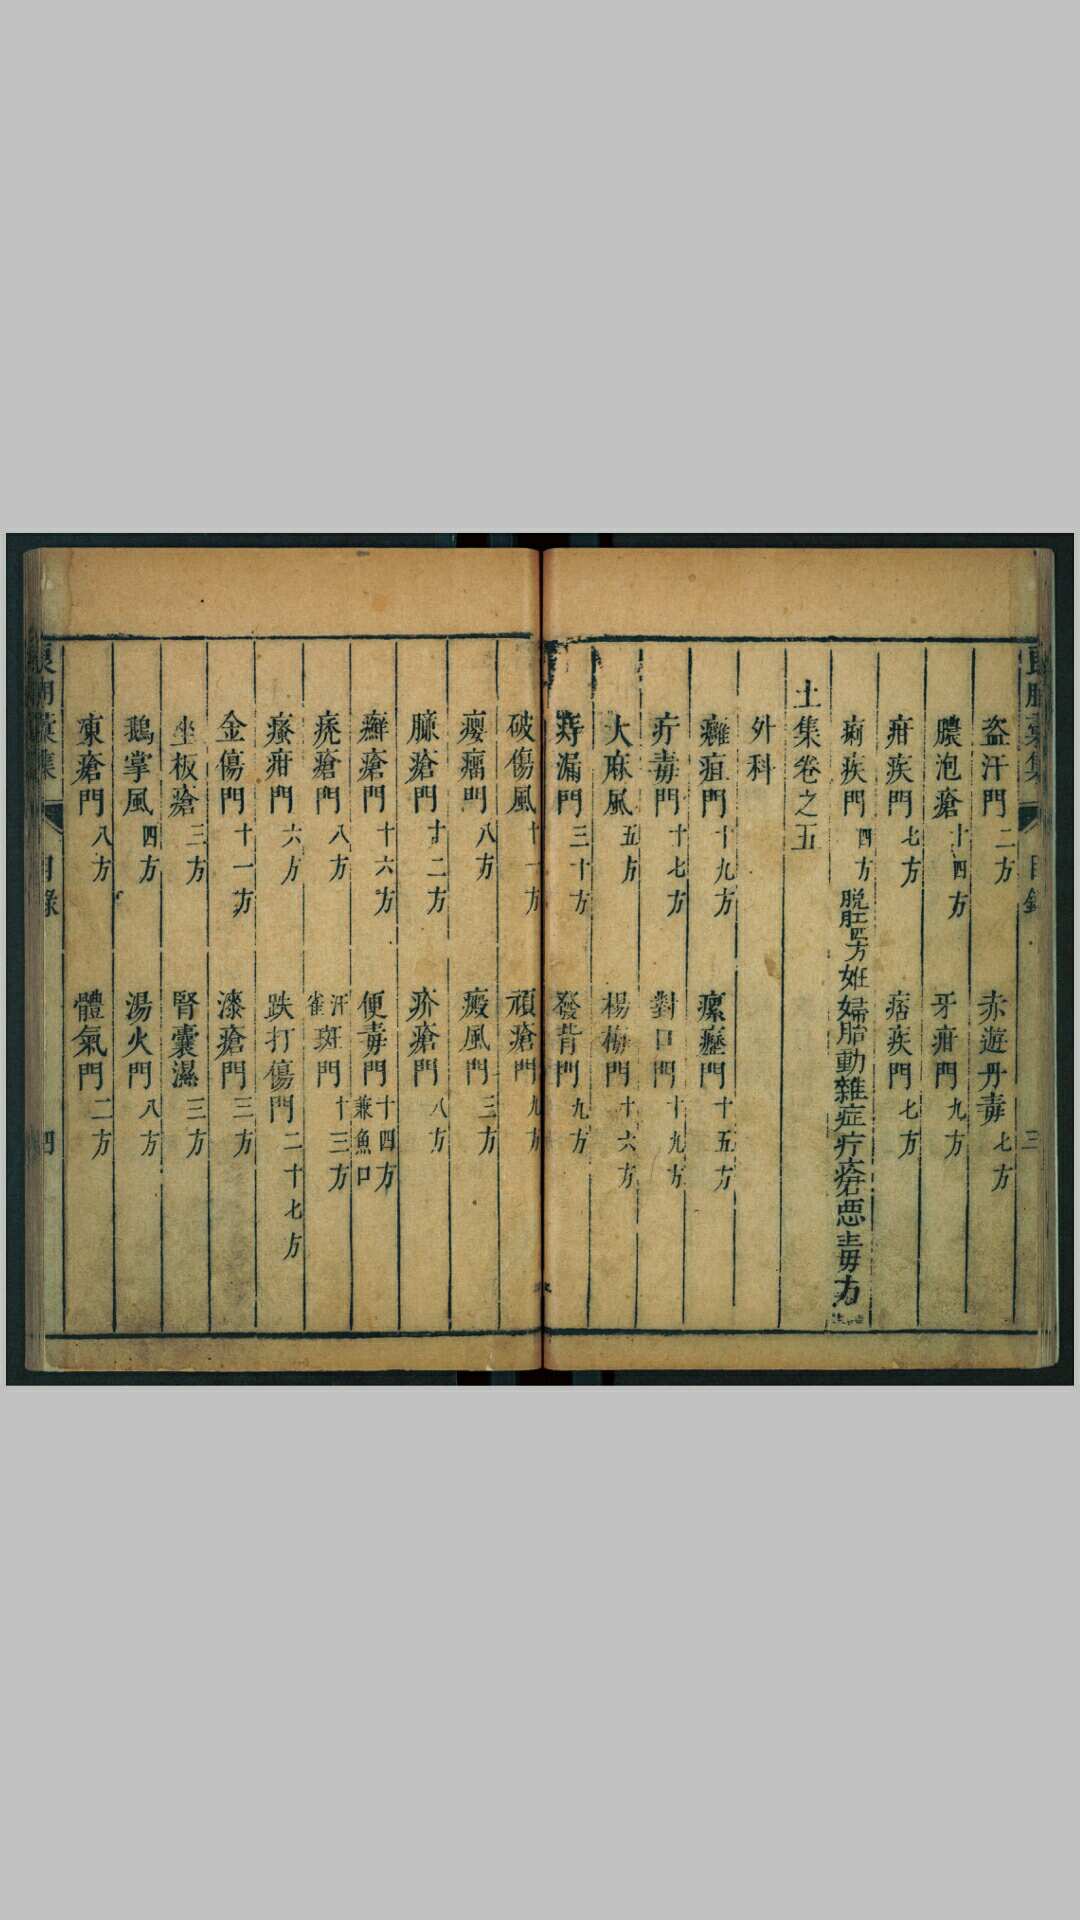 盜汗門二方 赤遊丹毒七方
膿泡瘡十四方 牙疳門九方
疳疾門七方 痞疾門七方
痢疾門四方脱肛四方妊婦胎動雜症疔瘡惡毒方
土集卷之五
外科
癰疽門十九方 瘰癧門十五方
疔毒門十七方 對口門十九方
大麻風五方 楊梅門十六方
痔漏門三十方 發背門九方
破傷風十一方 頑瘡門九方
癭瘤門八方 癜風門三方
臁瘡門十二方 疥瘡門八方
癬瘡門十六方 便毒門十四方兼魚口
禿瘡門八方 汗雀斑門十三方
瘙疳門六方 跌打傷門二十七方
金傷門十一方 漆瘡門三方
坐板瘡三方 腎囊濕三方
鵝掌風四方 湯火門八方
凍瘡門八方 體氣門二方
良朋彙集 目錄 四